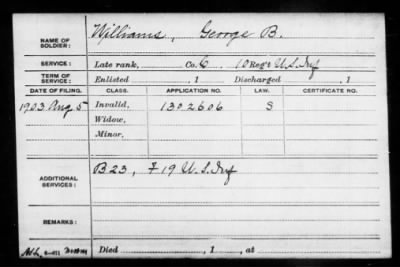 NAME OF SOLDIER: Williams, George B.
SERVICE: Late rank, Co. C 10 Reg't U.S. Inf
TERM OF SERVICE: Enlisted , 1 Discharged , 1
DATE OF FILING. CLASS. APPLICATION NO. LAW. CERTIFICATE NO.
1903 Aug 5 Invalid, 1302606 S
Widow,
Minor,
ADDITIONAL SERVICES: B 23, F 19 U.S. Inf
REMARKS:
Died , 1 , at